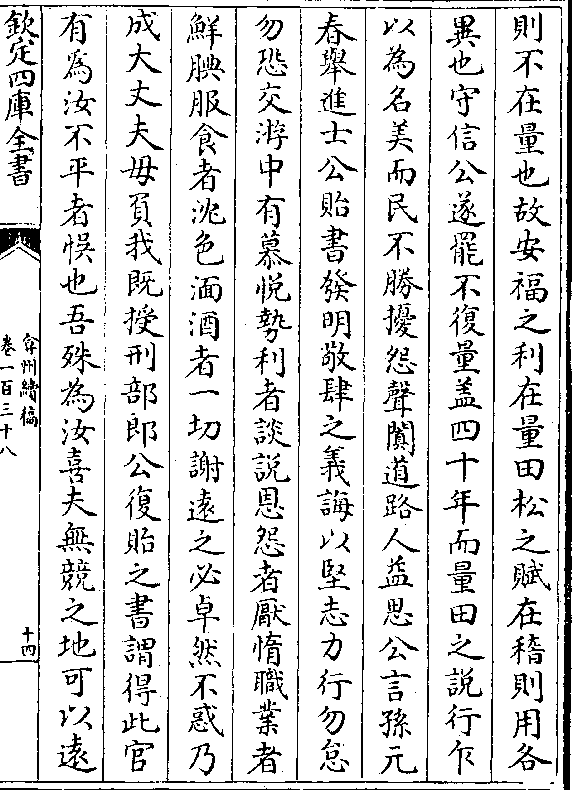 則不在量也故安福之利在量田松之賦在稽則用各
異也守信公遂罷不復量盖四十年而量田之說行乍
以為名美而民不勝擾怨聲闐道路人益思公言孫元
春舉進士公貽書發明敬肆之義誨以堅志力行勿怠
勿恐交游中有慕悅勢利者談說恩怨者厭惰職業者
鮮腆服食者沈色湎酒者一切謝遠之必卓然不惑乃
成大丈夫毋負我既授刑部郎公復貽之書謂得此官
有為汝不平者悞也吾殊為汝喜夫無競之地可以遠
欽定四庫全書
弇州續稿
卷一百三十八
十四